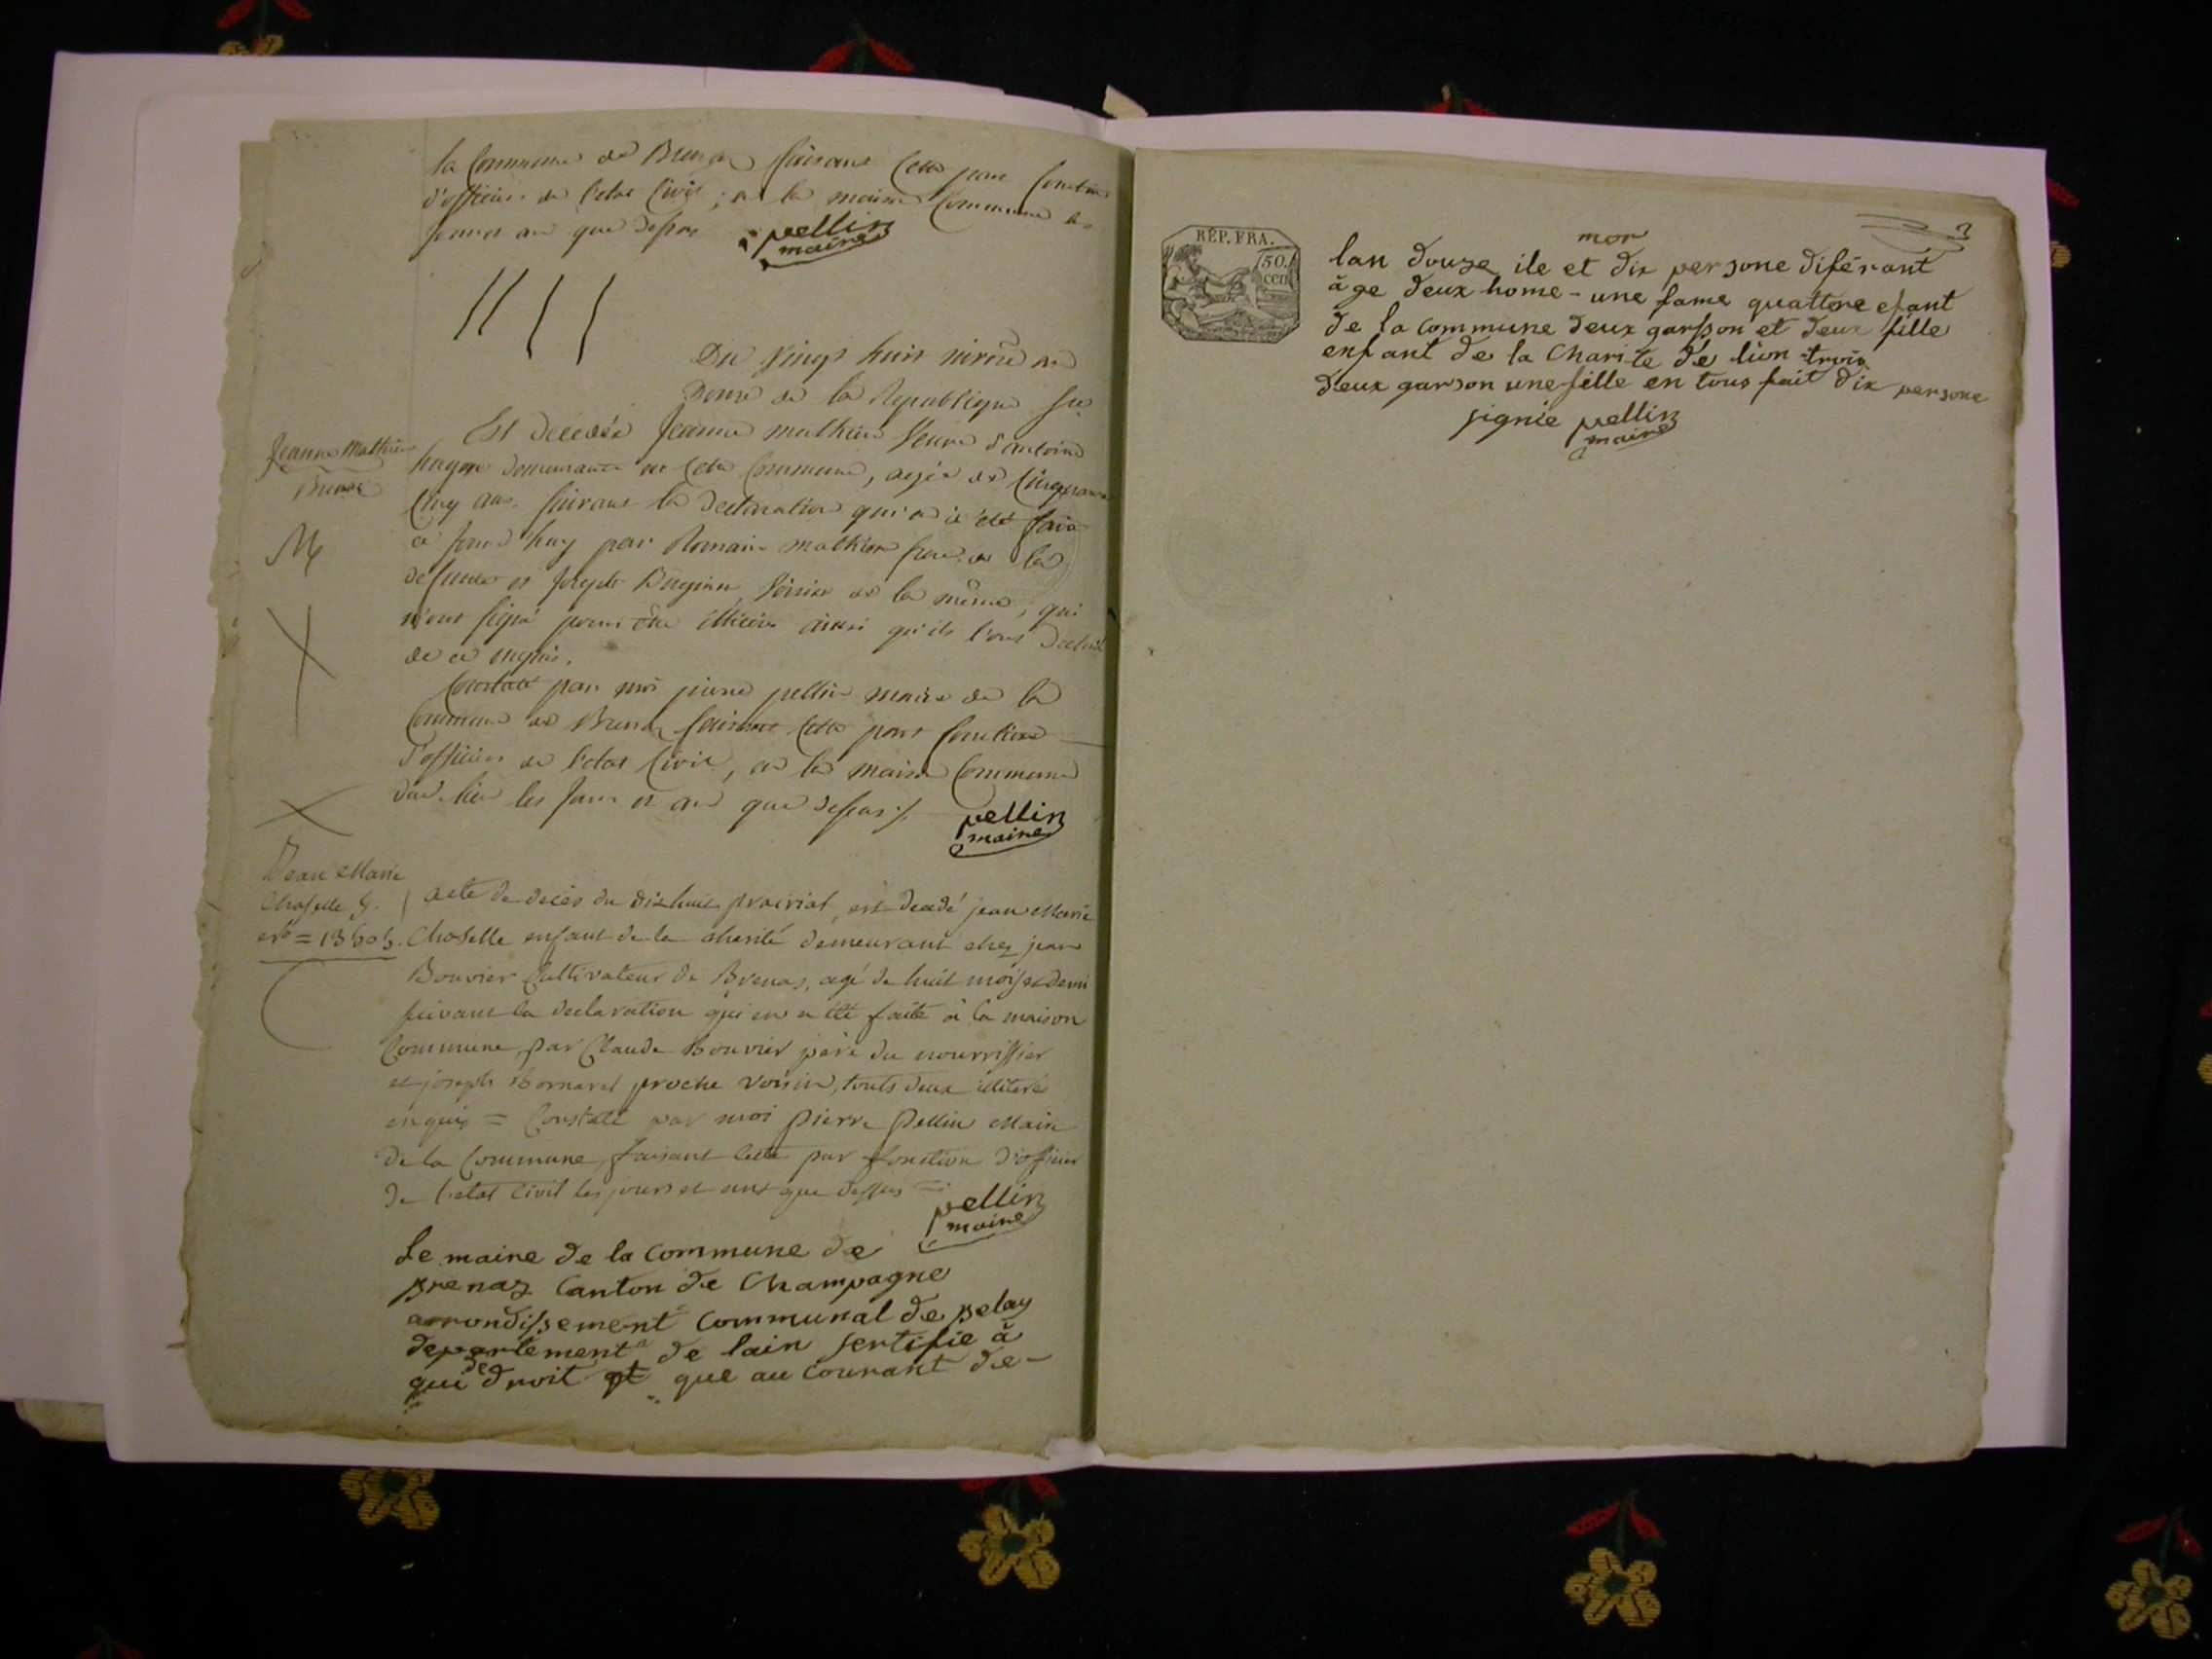 la Commune de Brenaz faisant Cette part fonction
d'officier de l'etat Civil; a la maison Commune les
jour et an que dessus pellin
maire
Du Vingt huit nivose an
Douze de la Republique fse
Jeanne Mathieu
Brenaz
Est decedée Jeanne mathieu Veuve d'antoine
hugon demeurante en Cette Commune, agée de Cinquante
Cinq ans. suivant la declaration qui a été faite
M
ce jourd huy par Romain mathieu frere de la
defunte et joseph Voisin de la même, qui
n'ont signé pour être illiteré ainsi qu'ils l'ont declaré
de ce enquis.
Constaté par moi pierre pellin maire de la
Commune de Brenaz faisant Cette part fonction
d'officier de l'etat Civil, en la maison Commune
dud. lieu les jour et an que dessus ./.
pellin
maire
Jean Marie
Choselle G.
nro = 13505.
acte de décès du dixhuit prairial, est decedé jean Marie
Choselle enfant de la charité demeurant chez jean
Bouvier Cultivateur de Brenas, agé de huit mois et demi
suivant la declaration qui en a été faite à la maison
Commune, par Claude Bouvier père du nourrissier
et joseph Bornarel proche voisin, touts deux illiteré
enquis = Constaté par moi pierre Pellin Maire
de la Commune, faisant cette par fonction d'officier
de l'etat Civil les jours et ans que dessus =
pellin
maire
Le maire de la Commune de
Brenaz Canton de Champagne
arrondissement Communal de Belay
departement de lain sertifie à
qui de droit que au Courant de-
REP. FRA.
50.
cen
3
lan douze ile et mor dix persone diférant
âge deux home - une fame quattore efant
de la Commune deux garsson et deux fille
enfant de la Charite de lion trois
deux garson une fille en tous fait dix persone
signée pellin
maire